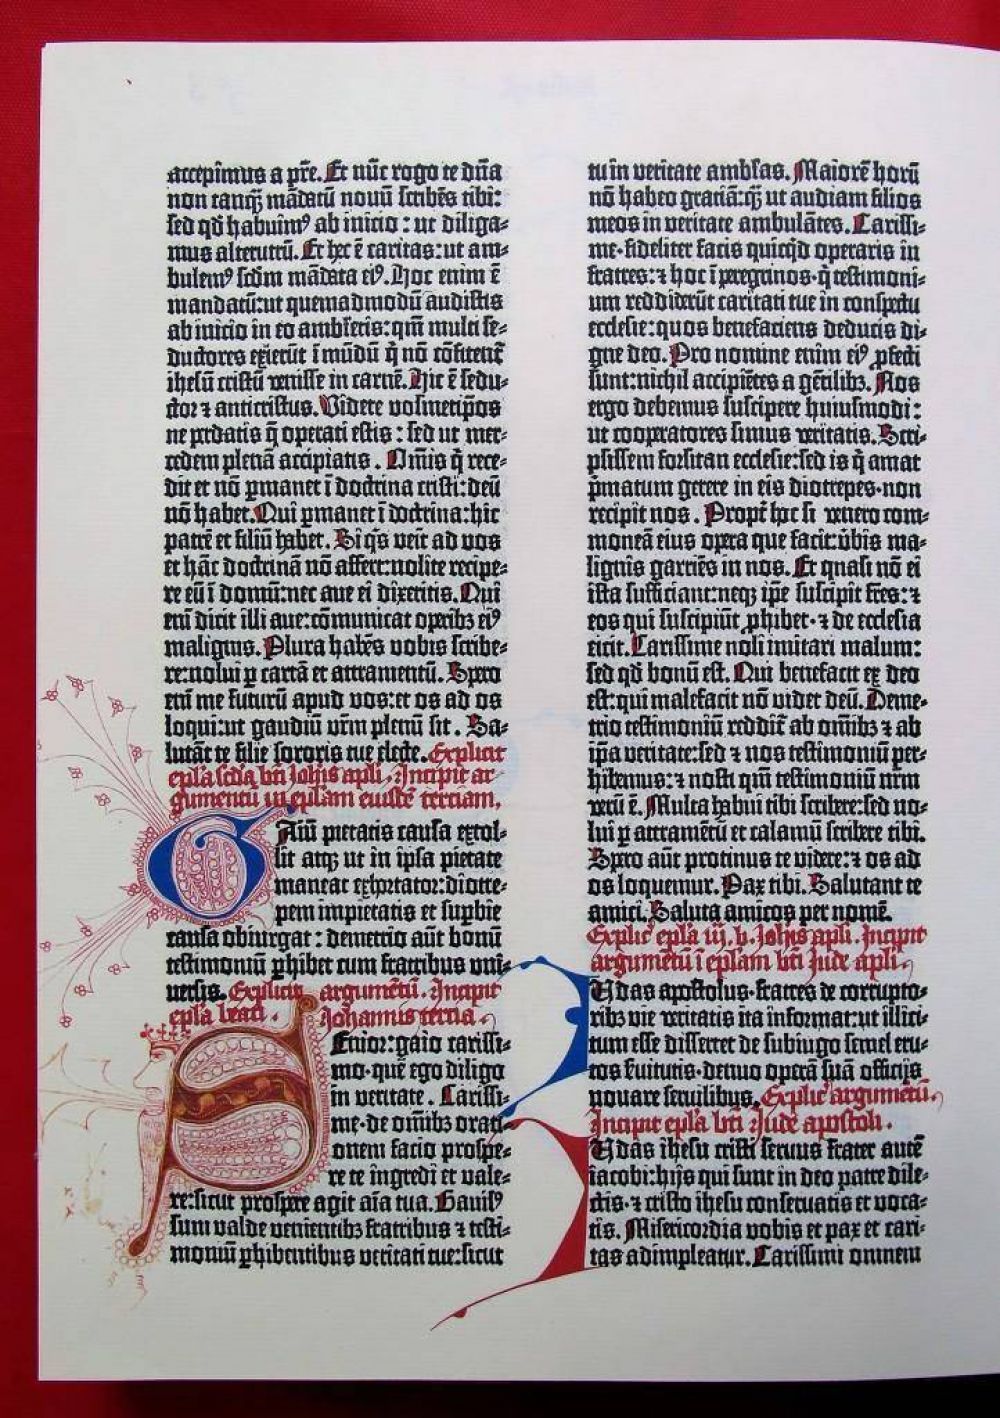 accepimus a pr̄e. Et nūc rogo te dn̄a
non tanqȝ mādatū nouū scribēs tibi:
sed qd̄ habuim⁹ ab inicio : ut diliga-
mus alterutrū. Et hec ē caritas: ut am-
bulem⁹ scd̄m mādata ei⁹. Hoc enim ē
mandatū: ut quemadmodū audistis
ab inicio in eo ambl̄etis: qm̄ multi se-
ductores exierūt ī mūdū q̄ nō cōfitent̄
ihesū cristū venisse in carnē. Hic ē sedu-
ctor ⁊ anticristus. Videte vosmetip̄os
ne p̄datis q̄ operati estis : sed ut mer-
cedem plenā accipiatis . Om̄is q̄ rece-
dit et nō ꝑmanet ī doctrina cristi: deū
nō habet. Qui ꝑmanet ī doctrina: hic
patrē et filiū habet. Si q̄s veīt ad vos
et hāc doctrinā nō affert: nolite recipe-
re eū ī domū: nec aue ei dixeritis. Qui
em̄ dicit illi aue: cōmunicat opibȝ ei⁹
malignis. Plura habēs vobis scribe-
re: nolui ꝑ cartā et attramentū. Spero
em̄ me futurū apud vos: et os ad os
loqui: ut gaudiū vr̄m plenū sit . Sa-
lutāt te filie sororis tue electe. Explicit
ep̄la scd̄a bt̄i Joh̄is apl̄i . Incipit ar-
gumentū in ep̄lam eiusdē terciam.
GAiū pietatis causa extol-
lit atqȝ ut in ipsa pietate
maneat exhortator: diotre-
pem impietatis et supbie
causa obiurgat : demetrio aūt bonū
testimoniū ꝑhibet cum fratribus vni-
uersis. Explicit argumētū. Incipit
ep̄la beati . Johannis tercia .
SEnior: gaio carissi-
mo. quē ego diligo
in veritate . Carissi-
me. de om̄ibȝ orati-
onem facio prospe-
re te ingredi et vale-
re: sicut prospere agit aīa tua. Gauis⁹
sum valde venientibȝ fratribus ⁊ testi-
moniū ꝑhibentibus veritati tue: sicut
tu in veritate ambl̄as. Maiorē horū
nō habeo gratiā: qȝ ut audiam filios
meos in veritate ambulātes. Carissi-
me. fideliter facis quicq̄d operaris in
fratres: ⁊ hoc ī peregrinos. q̄ testimoni-
um reddiderūt caritati tue in conspectu
ecclesie: quos benefaciens deducis di-
gne deo. Pro nomine enim ei⁹ ꝓfecti
sunt: nichil accipiētes a gētilibȝ. Nos
ergo debemus suscipere huiusmodi:
ut cooperatores simus veritatis. Scri-
psissem forsitan ecclesie: sed is q̄ amat
p̄matum gerere in eis diotrepes. non
recipit nos . Propt̄ hoc si venero com-
moneā eius opera que facit: v̄bis ma-
lignis garriēs in nos. Et quasi nō ei
ista sufficiant: neqȝ ip̄e suscipit fr̄es: ⁊
eos qui suscipiūt ꝓhibet. ⁊ de ecclesia
eicit. Carissime noli imitari malum:
sed qd̄ bonū est. Qui benefacit ex deo
est: qui malefacit nō videt deū. Deme-
trio testimoniū reddit̄ ab om̄ibȝ ⁊ ab
ip̄a veritate: sed ⁊ nos testimoniū per-
hibemus: ⁊ nosti qm̄ testimoniū nr̄m
verū ē. Multa habui tibi scribere: sed no-
lui ꝑ attramētū et calamū scribere tibi.
Spero aūt protinus te videre: ⁊ os ad
os loquemur. Pax tibi. Salutant te
amici. Saluta amicos per nomē.
Explic̄ ep̄la iij. b. Joh̄is apl̄i. Incipit
argumētū ī ep̄lam bt̄i Jude apl̄i .
IUdas apostolus. fratres de corrupto-
ribȝ vie veritatis ita informat: ut illici-
tum esse disserret de subiugo semel eru-
tos seruitutis. denuo operā suā officijs
nouare seruilibus. Explic̄ argumētū.
Incipit ep̄la bt̄i Jude apostoli .
IUdas ihesu cristi seruus frater autē
iacobi: hijs qui sunt in deo patre dile-
ctis. ⁊ cristo ihesu conseruatis et voca-
tis. Misericordia vobis et pax et cari-
tas adimpleatur. Carissimi omnem